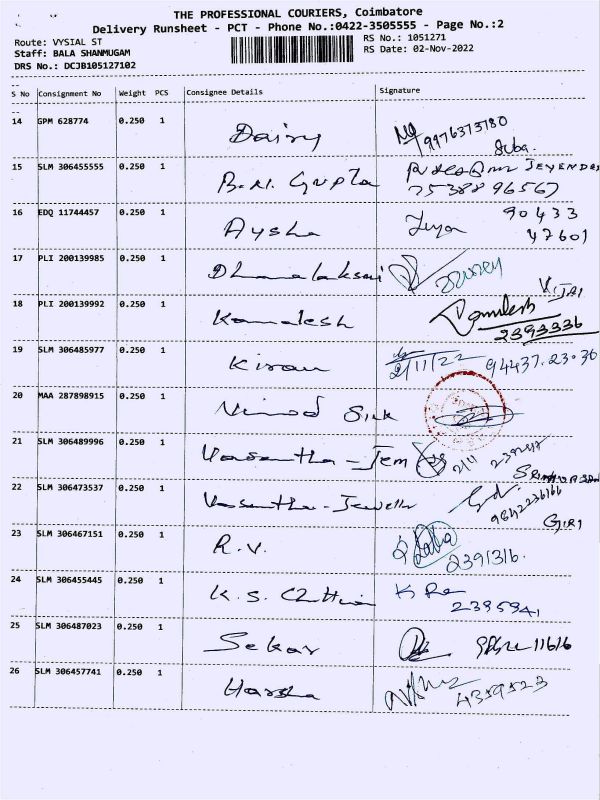 THE PROFESSIONAL COURIERS, Coimbatore
Delivery Runsheet - PCT - Phone No.:0422-3505555 - Page No.:2
Route: VYSIAL ST
Staff: BALA SHANMUGAM
DRS No.: DCJB105127102
RS No.: 1051271
RS Date: 02-Nov-2022
S No Consignment No Weight PCS Consignee Details Signature
14 GPM 628774 0.250 1 Dairy 9976373780
15 SLM 306455555 0.250 1 B.N. Gupta 7538896567
16 EDQ 11744457 0.250 1 Aysha 90433
47601
17 PLI 200139985 0.250 1 Dhanalaksmi
18 PLI 200139992 0.250 1 Kamalesh Kamalesh
2393336
19 SLM 306485977 0.250 1 Kiran 2/11/22 94437.23.036
20 MAA 287898915 0.250 1 Vinod
21 SLM 306489996 0.250 1 Vasantha - Jem 2/11
22 SLM 306473537 0.250 1 Vasantha - Jewells 9842236166
GIRI
23 SLM 306467151 0.250 1 R.V. 2391316.
24 SLM 306455445 0.250 1 K.S. 2395941
25 SLM 306487023 0.250 1 Sekar
26 SLM 306457741 0.250 1 Harsha 4359523